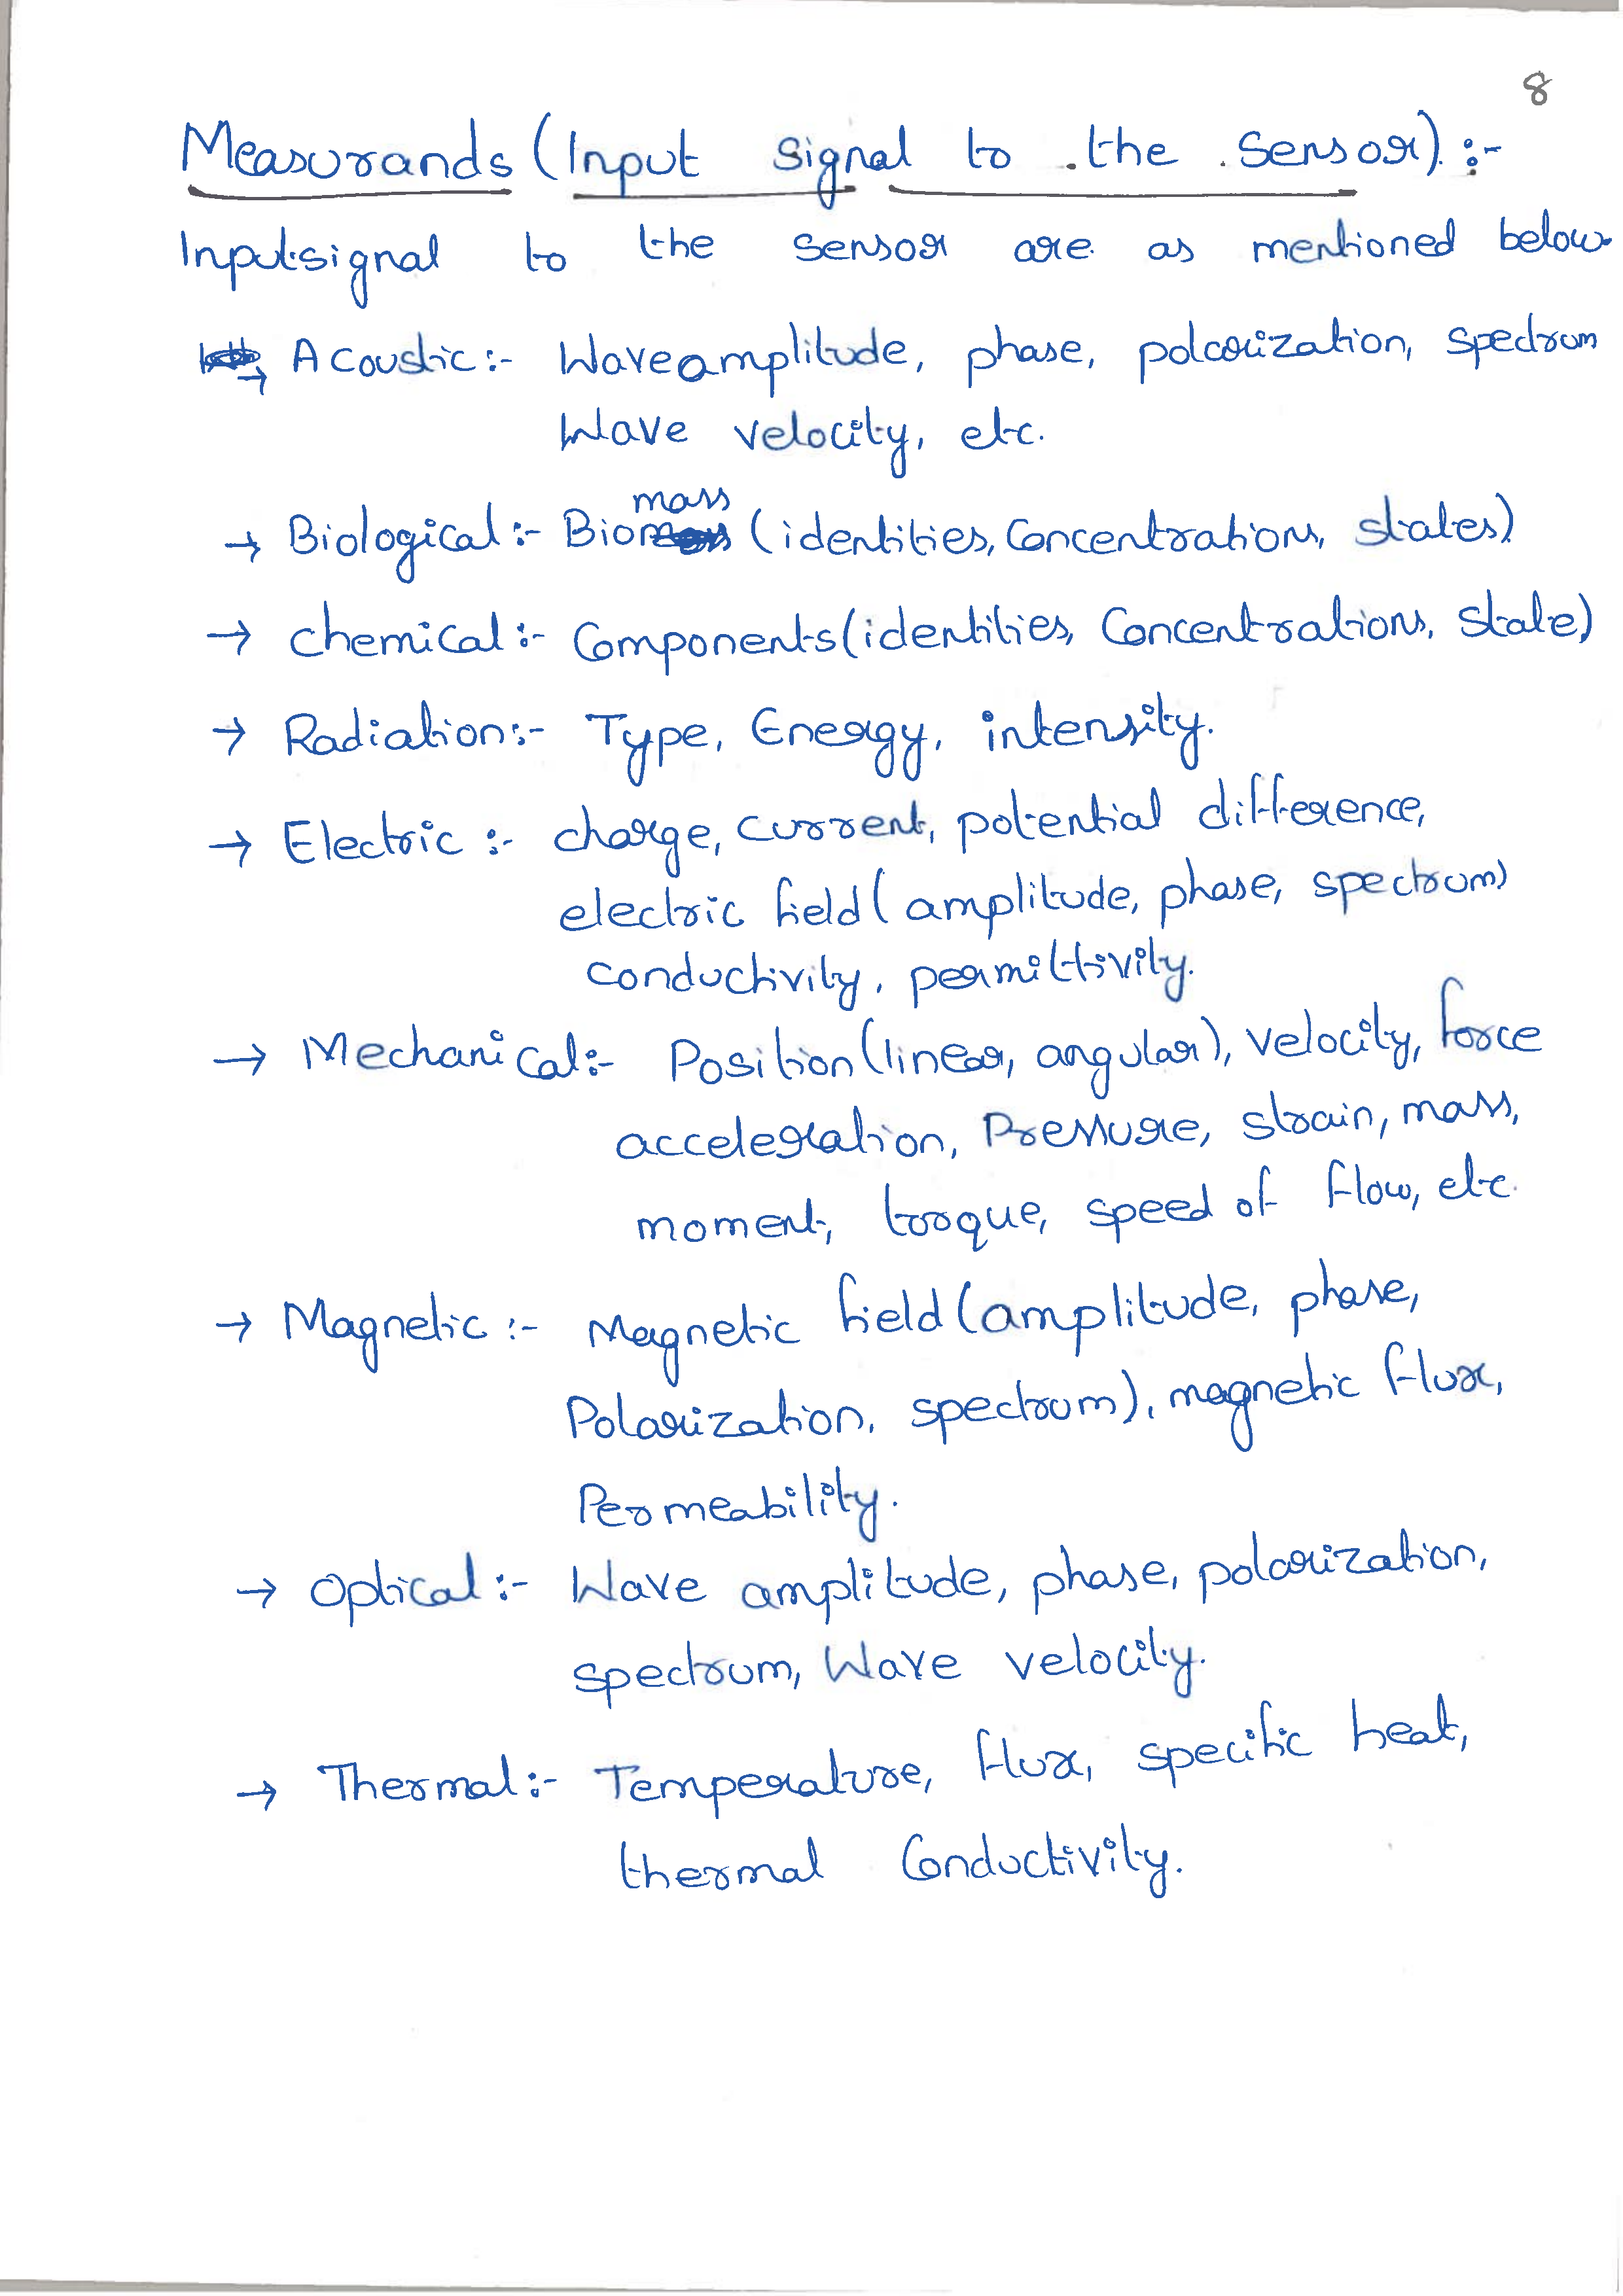 8
Measurands (Input signal to the sensor) :-
Inputsignal to the sensor are as mentioned below.
→ Acoustic :- Wave amplitude, phase, polarization, spectrum
Wave velocity, etc.
mass
→ Biological :- Bio (identities, Concentrations, states)
→ chemical :- Components (identities, Concentrations, state)
→ Radiation :- Type, Energy, intensity.
→ Electric :- charge, current, potential difference,
electric field (amplitude, phase, spectrum)
conductivity, permittivity.
→ Mechanical :- Position (linear, angular), velocity, force
acceleration, Pressure, strain, mass,
moment, torque, speed of flow, etc.
→ Magnetic :- Magnetic field (amplitude, phase,
Polarization, spectrum), magnetic flux,
Permeability.
→ Optical :- Wave amplitude, phase, polarization,
spectrum, Wave velocity.
→ Thermal :- Temperature, flux, specific heat,
thermal Conductivity.